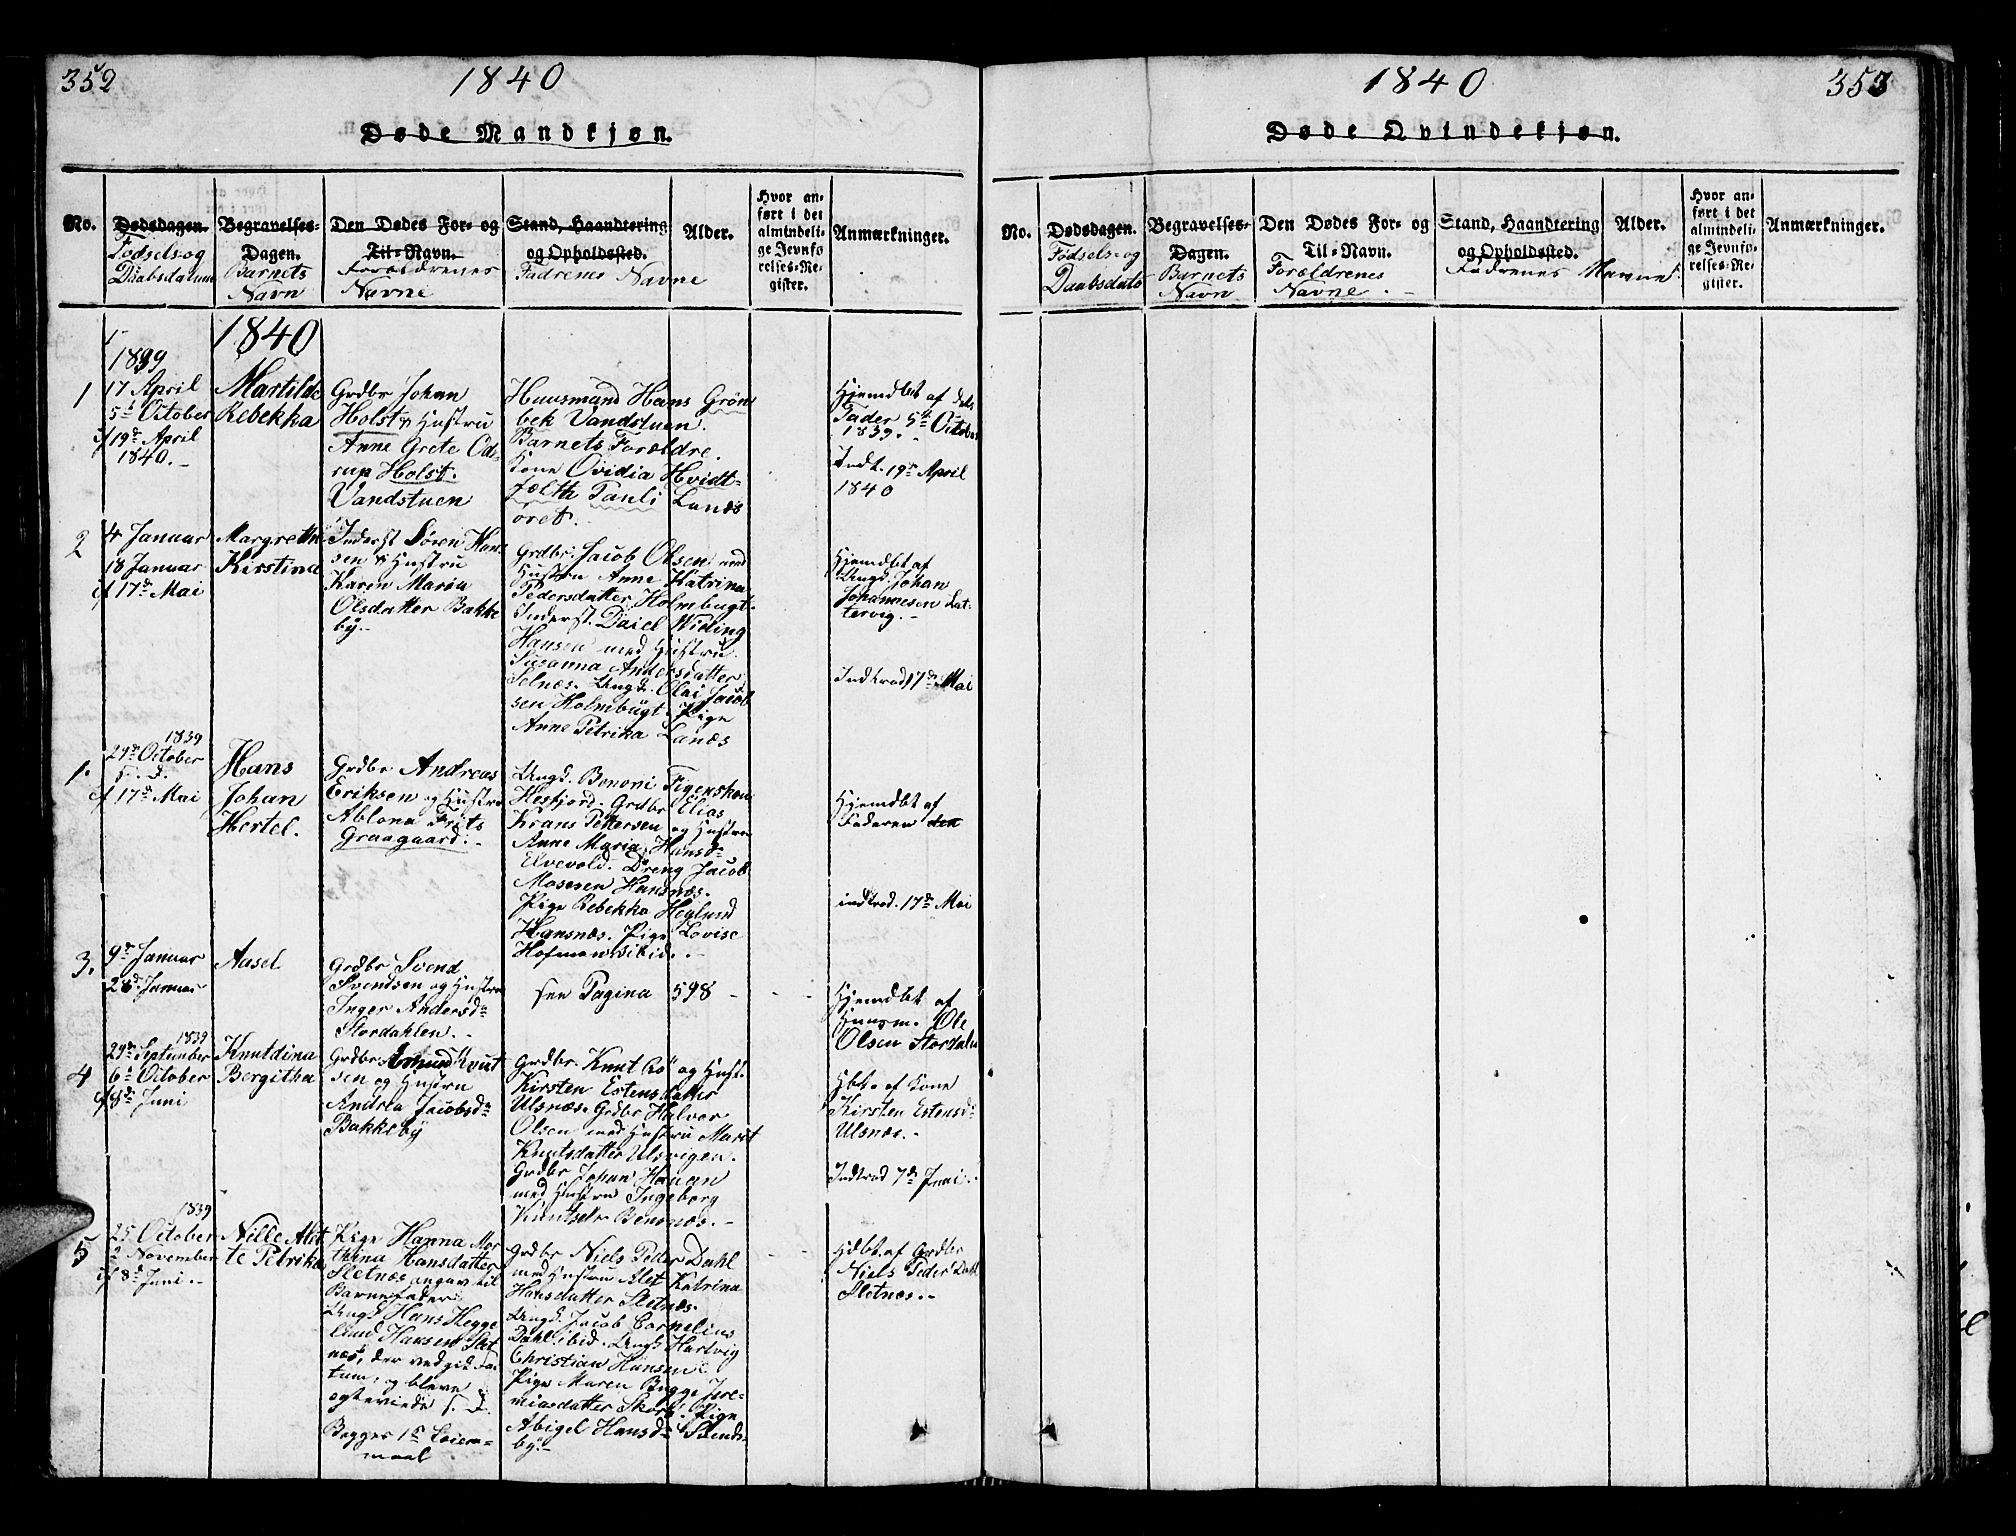 352
1840
Døde Mandkjøn.
No.
Dødsdagen.
Fødsels og
Daabsdatum
Begravelses-
Dagen.
Barnets
Navn
Den Dødes For- og
Til-Navn.
Forældrenes
Navne
Stand, Haandtering
og Opholdsted.
Fadrenes Navne
Alder.
Hvor an-
ført i det
almindeli-
ge Jevnfø-
relses-Re-
gister.
Anmærkninger.
1840
1
1839
17 April
5te October
if 19de April
1840.
Martilde
Rebekka
Grdbr Johan
Holst & Hustru
Anne Grete Od-
rup Holst.
Vandstuen
Huusmand Hans Grøn
bek Vandstuen.
Barnets Forældre.
Kone Ovidia Hvidt-
fælth Pauli Lunds
øret.
Hjemdbt af
Fader 5te October
1839.
Indt. 19de April
1840
2
4 Januar
18 Januar
if 17de Mai
Margrethe
Kirstina
Inderst Søren Han-
sen & Hustru
Karen Maria
Olsdatter Bakke
by.
Grdbr. Jacob Olsen med
Hustru Anne Katrina
Pedersdatter Holmbugt.
Inderst. Daiel Widing
Hansen med Hustru
Susanna Andersdatter
Selnæs. Ungd. Olai Jacob
sen Holmbugt. Pige
Anne Petrika Lanæs
Hjemdbt af
Ungd. Johan
Johannesen Lat-
tervig.
Indtrod 17de Mai
1.
1839
27de October
s. d.
if 17de Mai
Hans
Johan
Hertel.
Grdbr Andreas
Eriksen og Hustru
Ablona Frits
Graagaard.
Ungd. Benoni Figenskou
Hesfjord. Grdbr Elias
Krans Pettersen og Hustru
Anne Maria Hansd-
Elvevold. Dreng Jacob
Mosesen Hansnæs.
Pige Rebekka Heglund
Hansnæs. Pige Lovise
Hofman ibid.
Hjemdbt af
Faderen den
indtrod. 17de Mai
3.
9de Januar
28de Januar
Aasel
Grdbr Svend
Svendsen og Hustru
Inger Andersd-
Stordahlen.
see Pagina 598
Hjemdbt af
Huusm. Ole
Olsen Stordalen
4
1839
29de September
6te October
if 8de Juni
Knutdina
Bergitha
Grdbr Asmund Knut
sen og Hustru
Andrea Jacobsd-
Bakkeby
Grdbr. Knut Rö og Hust.
Kirsten Estensdatter
Ulsnæs. Grdbr Halvor
Olsen med Hustru Marit
Knutsdatter Ulsvigen.
Grdbr Johan Hauan
med Hustru Ingeborg
Knutsdr Bensnæs.
Hbt. af Kone
Kirsten Estensd-
Ulsnæs.
Indtrod 7de Juni
5
1839
25 October
2 November
if 8de Juni
Nille Alet
te Petrika
Pige Hanna Mar
thina Hansdatter
Sletnæs angav til
Barnefader
Ungk Hans Hegge
lund Hansen Slet
næs, der vedgik Fac
tum, og bleve
ogteviede s. d.
Begges 1ste Leier-
maal
Grdbr Niels Peder Dahl
med Hustru Alet Katrina
Hansdatter Sletnæs.
Ungd. Jacob Cornelius
Dahl ibid. Ungk Hartvig
Christian Hansen
Pige Maren Bugge Jere-
miasdatter Skorö. Pige
Abigel Hansd- Stends-
by.
Hdbt. af Grdbr
Niels Peder Dahl
Sletnæs.
1840
353
Døde Qvindekjøn.
No.
Dødsdagen.
Fødsels- og
Daabsdato
Begravelses-
Dagen.
Barnets
Navn
Den Dødes For- og
Til-Navn.
Forældrenes
Navne.
Stand, Haandtering
og Opholdsted.
Fadrenes Navne.
Alder.
Hvor an-
ført i det
almindeli-
ge Jevnfø-
relses-Re-
gister.
Anmærkninger.